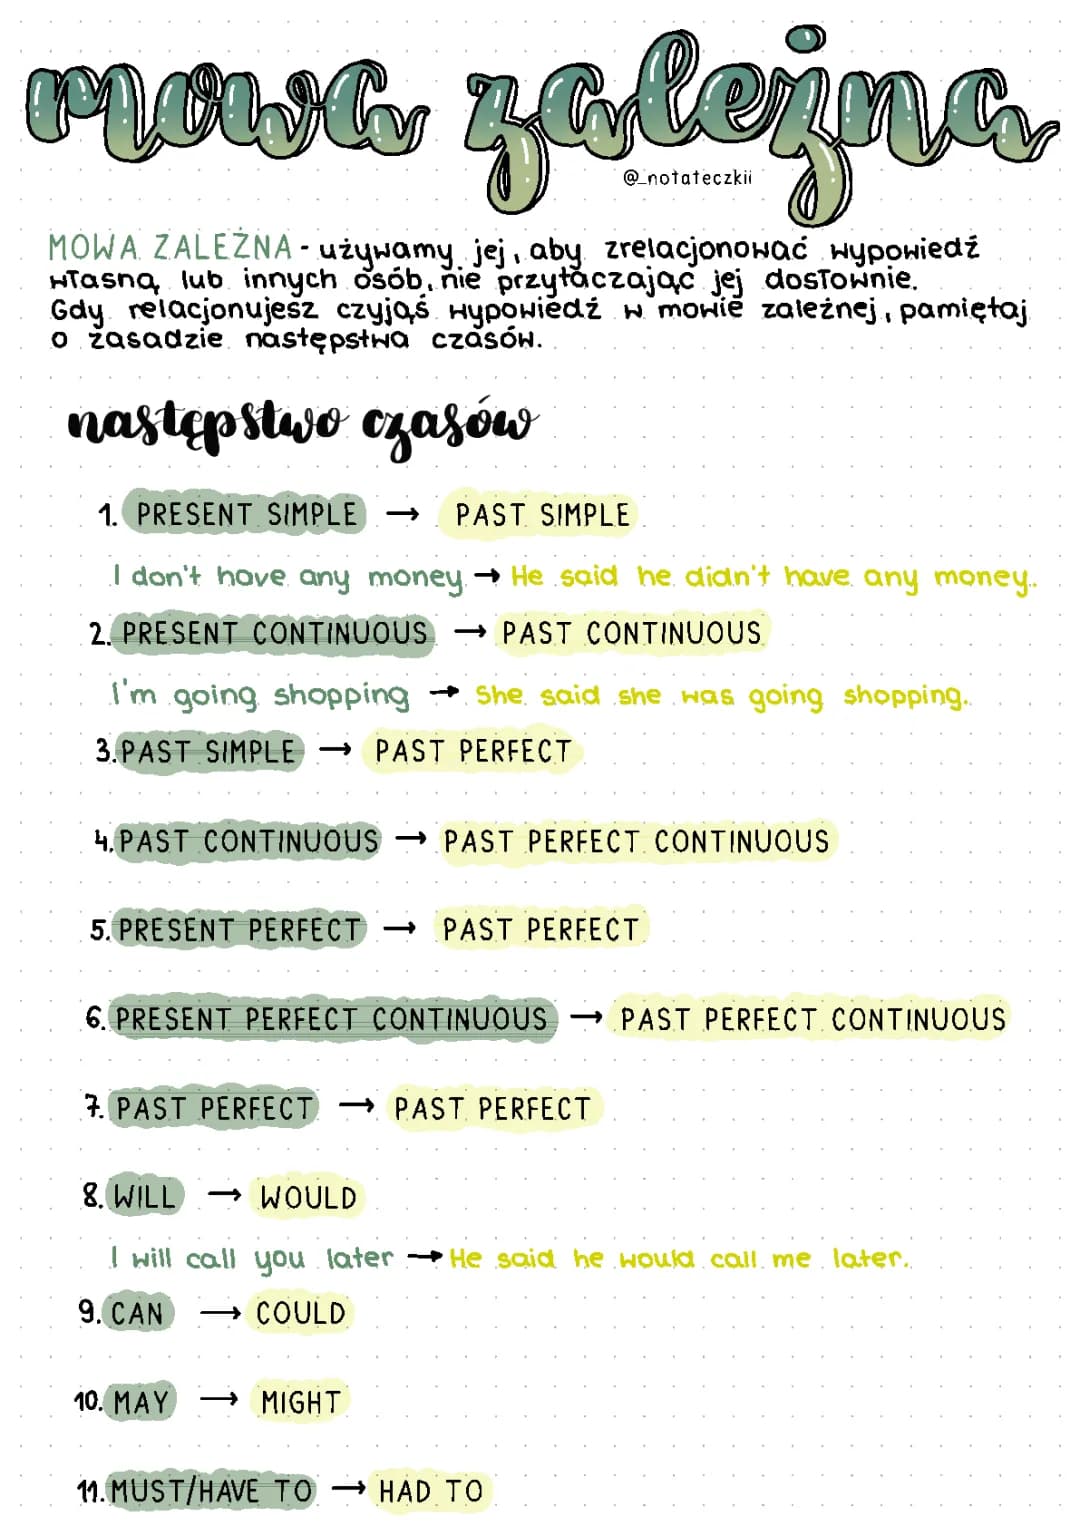 mowa zależna
@_notateczkii
MOWA ZALEŻNA - używamy jej, aby zrelacjonować wypowiedź
własną lub innych osób, nie przytaczając jej dosłownie.
Gdy relacjonujesz czyjąś wypowiedź w mowie zależnej, pamiętaj
o zasadzie następstwa czasów.
następstwo czasów
1. PRESENT SIMPLE → PAST SIMPLE
I don't have any money → He said he didn't have any money.
2. PRESENT CONTINUOUS → PAST CONTINUOUS
I'm going shopping → She said she was going shopping.
3. PAST SIMPLE → PAST PERFECT
4. PAST CONTINUOUS → PAST PERFECT CONTINUOUS
5. PRESENT PERFECT → PAST PERFECT
6. PRESENT PERFECT CONTINUOUS → PAST PERFECT CONTINUOUS
7. PAST PERFECT → PAST PERFECT
8. WILL → WOULD
I will call you later → He said he would call me later.
9. CAN → COULD
10. MAY → MIGHT
11. MUST/HAVE TO → HAD TO